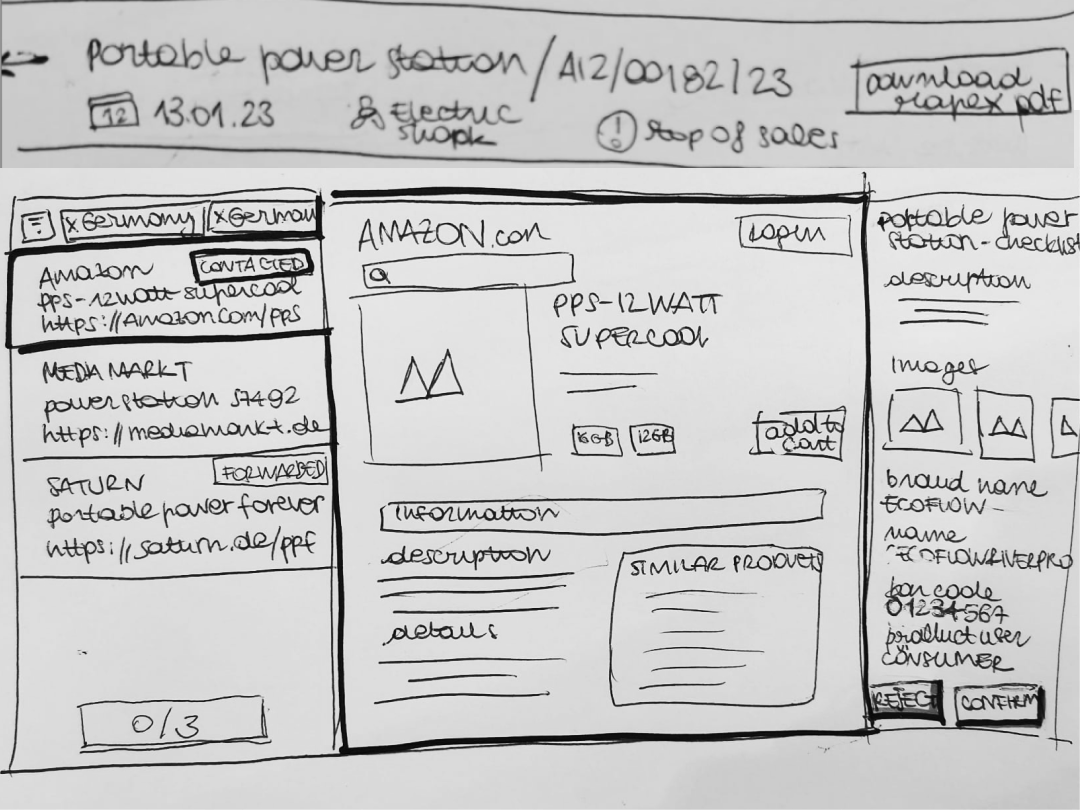 Portable power station/A12/00182/23
Download
rapex pdf
12 13.01.23
Electric
shopk
! Stop of sales
x Germany
x German
Amazon
CONTACTED
pps-12watt supercool
https://Amazon.com/pps
MEDIA MARKT
powerstation S7492
https://mediamarkt.de
SATURN
FORWARDED
portable power forever
https://saturn.de/ppf
0/3
AMAZON.com
Login
PPS-12WATT
SUPERCOOL
16GB
12GB
add to
cart
information
description
details
SIMILAR PRODUCTS
portable power
station-checklist
description
Images
brand name
ECOFLOW
name
ECOFLOWRIVERPRO
bar code
01234567
product user
CONSUMER
REJECT
CONFIRM